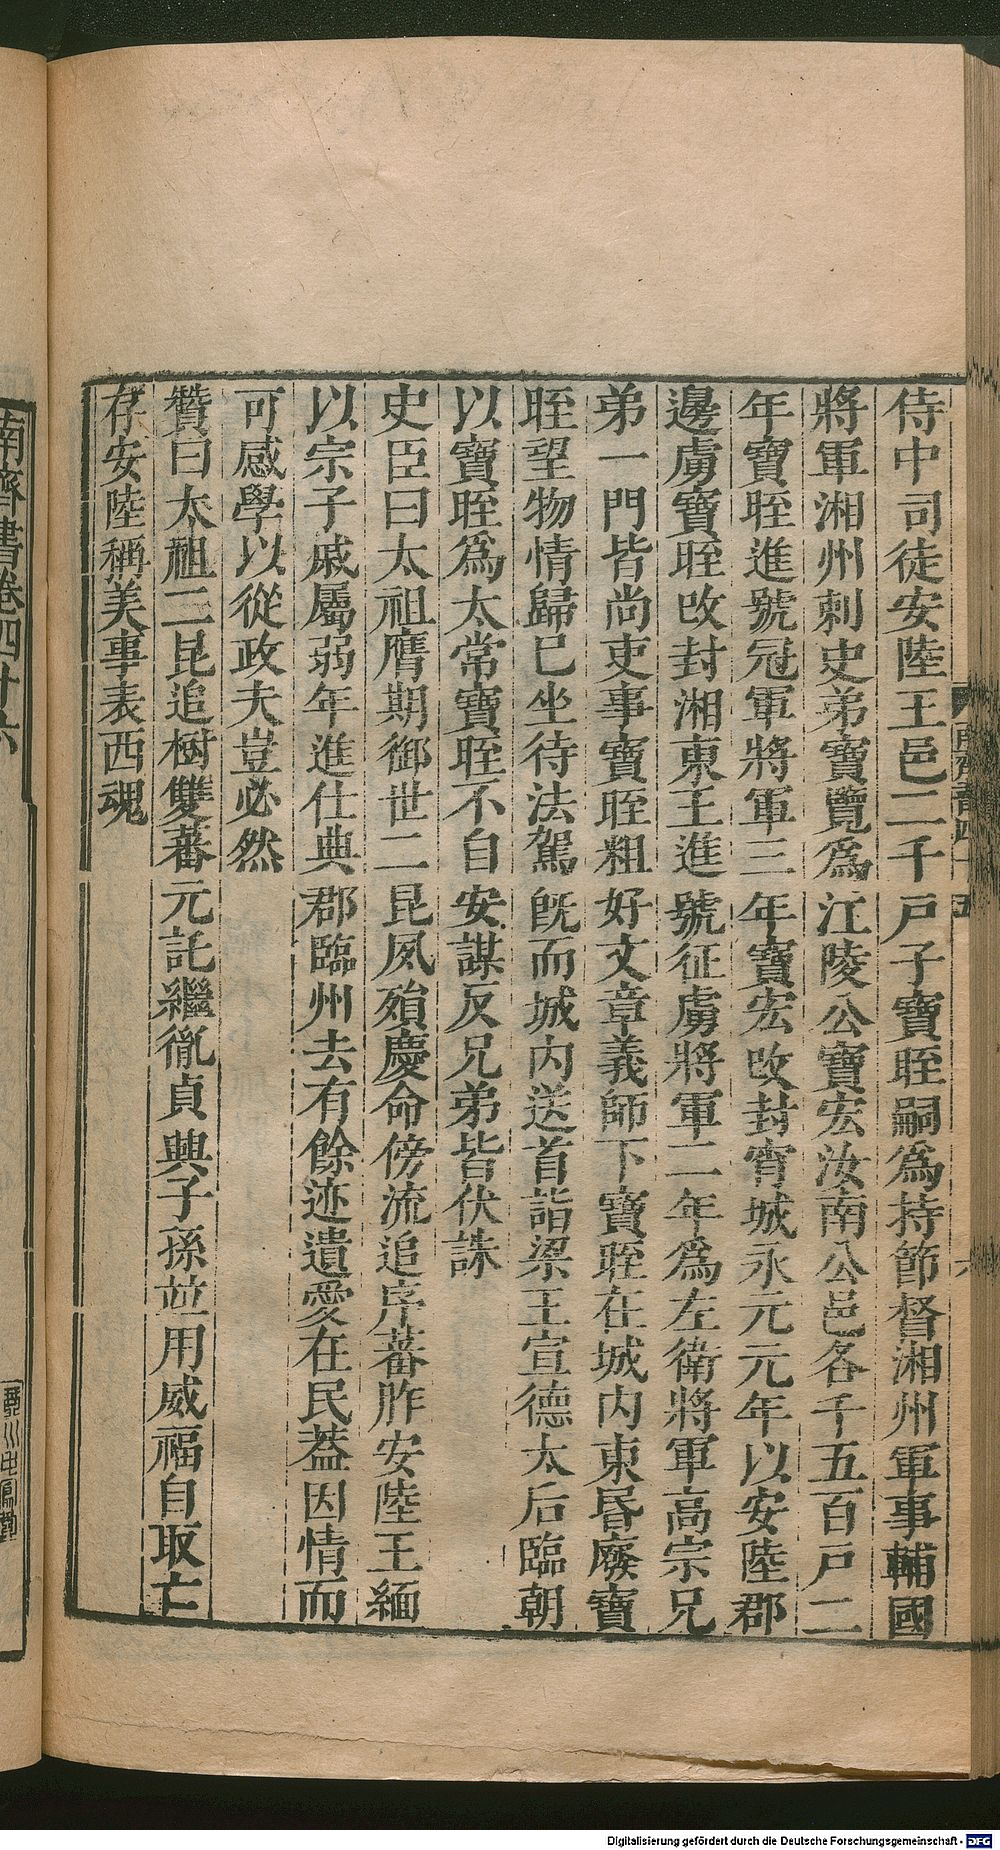 侍中司徒安陸王邑二千戸子寶晊嗣爲持節督湘州軍事輔國
將軍湘州刺史弟寶覽爲江陵公寶宏汝南公邑各千五百戸二
年寶晊進號冠軍將軍三年寶宏改封宵城永元元年以安陸郡
邊虜寶晊改封湘東王進號征虜將軍二年爲左衛將軍高宗兄
弟一門皆尚吏事寶晊粗好文章義師下寶晊在城内東昏廢寶
晊望物情歸已坐待法駕旣而城内送首詣梁王宣德太后臨朝
以寶晊爲太常寶晊不自安謀反兄弟皆伏誅
史臣曰太祖膺期御世二昆夙殞慶命傍流追序蕃胙安陸王緬
以宗子戚屬弱年進仕典郡臨州去有餘迹遺愛在民蓋因情而
可感學以從政夫豈必然
贊曰太祖二昆追樹雙蕃元託繼胤貞興子孫竝用威福自取亡
存安陸稱美事表西魂
南齊書卷四十六
Digitalisierung gefördert durch die Deutsche Forschungsgemeinschaft - DFG